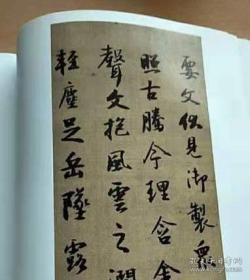 要文伏見御製眾
照古騰今理含金
聲文抱風雲之潤
輕塵足岳墜露